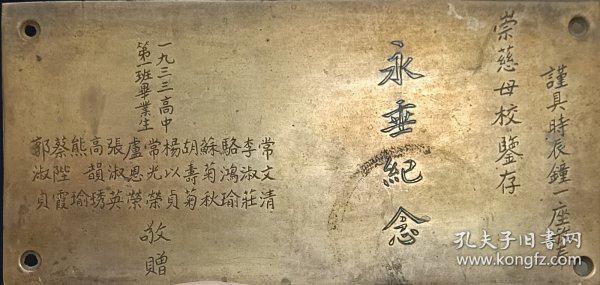 謹具時辰鐘一座
崇慈母校鑒存
永垂紀念
一九三三高中
第一班畢業生
常文清
李淑莊
駱鴻瑜
蘇菊秋
胡壽菊
楊以貞
常光榮
盧恩榮
張淑英
高韻琇
熊瑜
蔡陛霞
郭淑貞
敬贈
孔夫子旧书网
www.kongfz.com